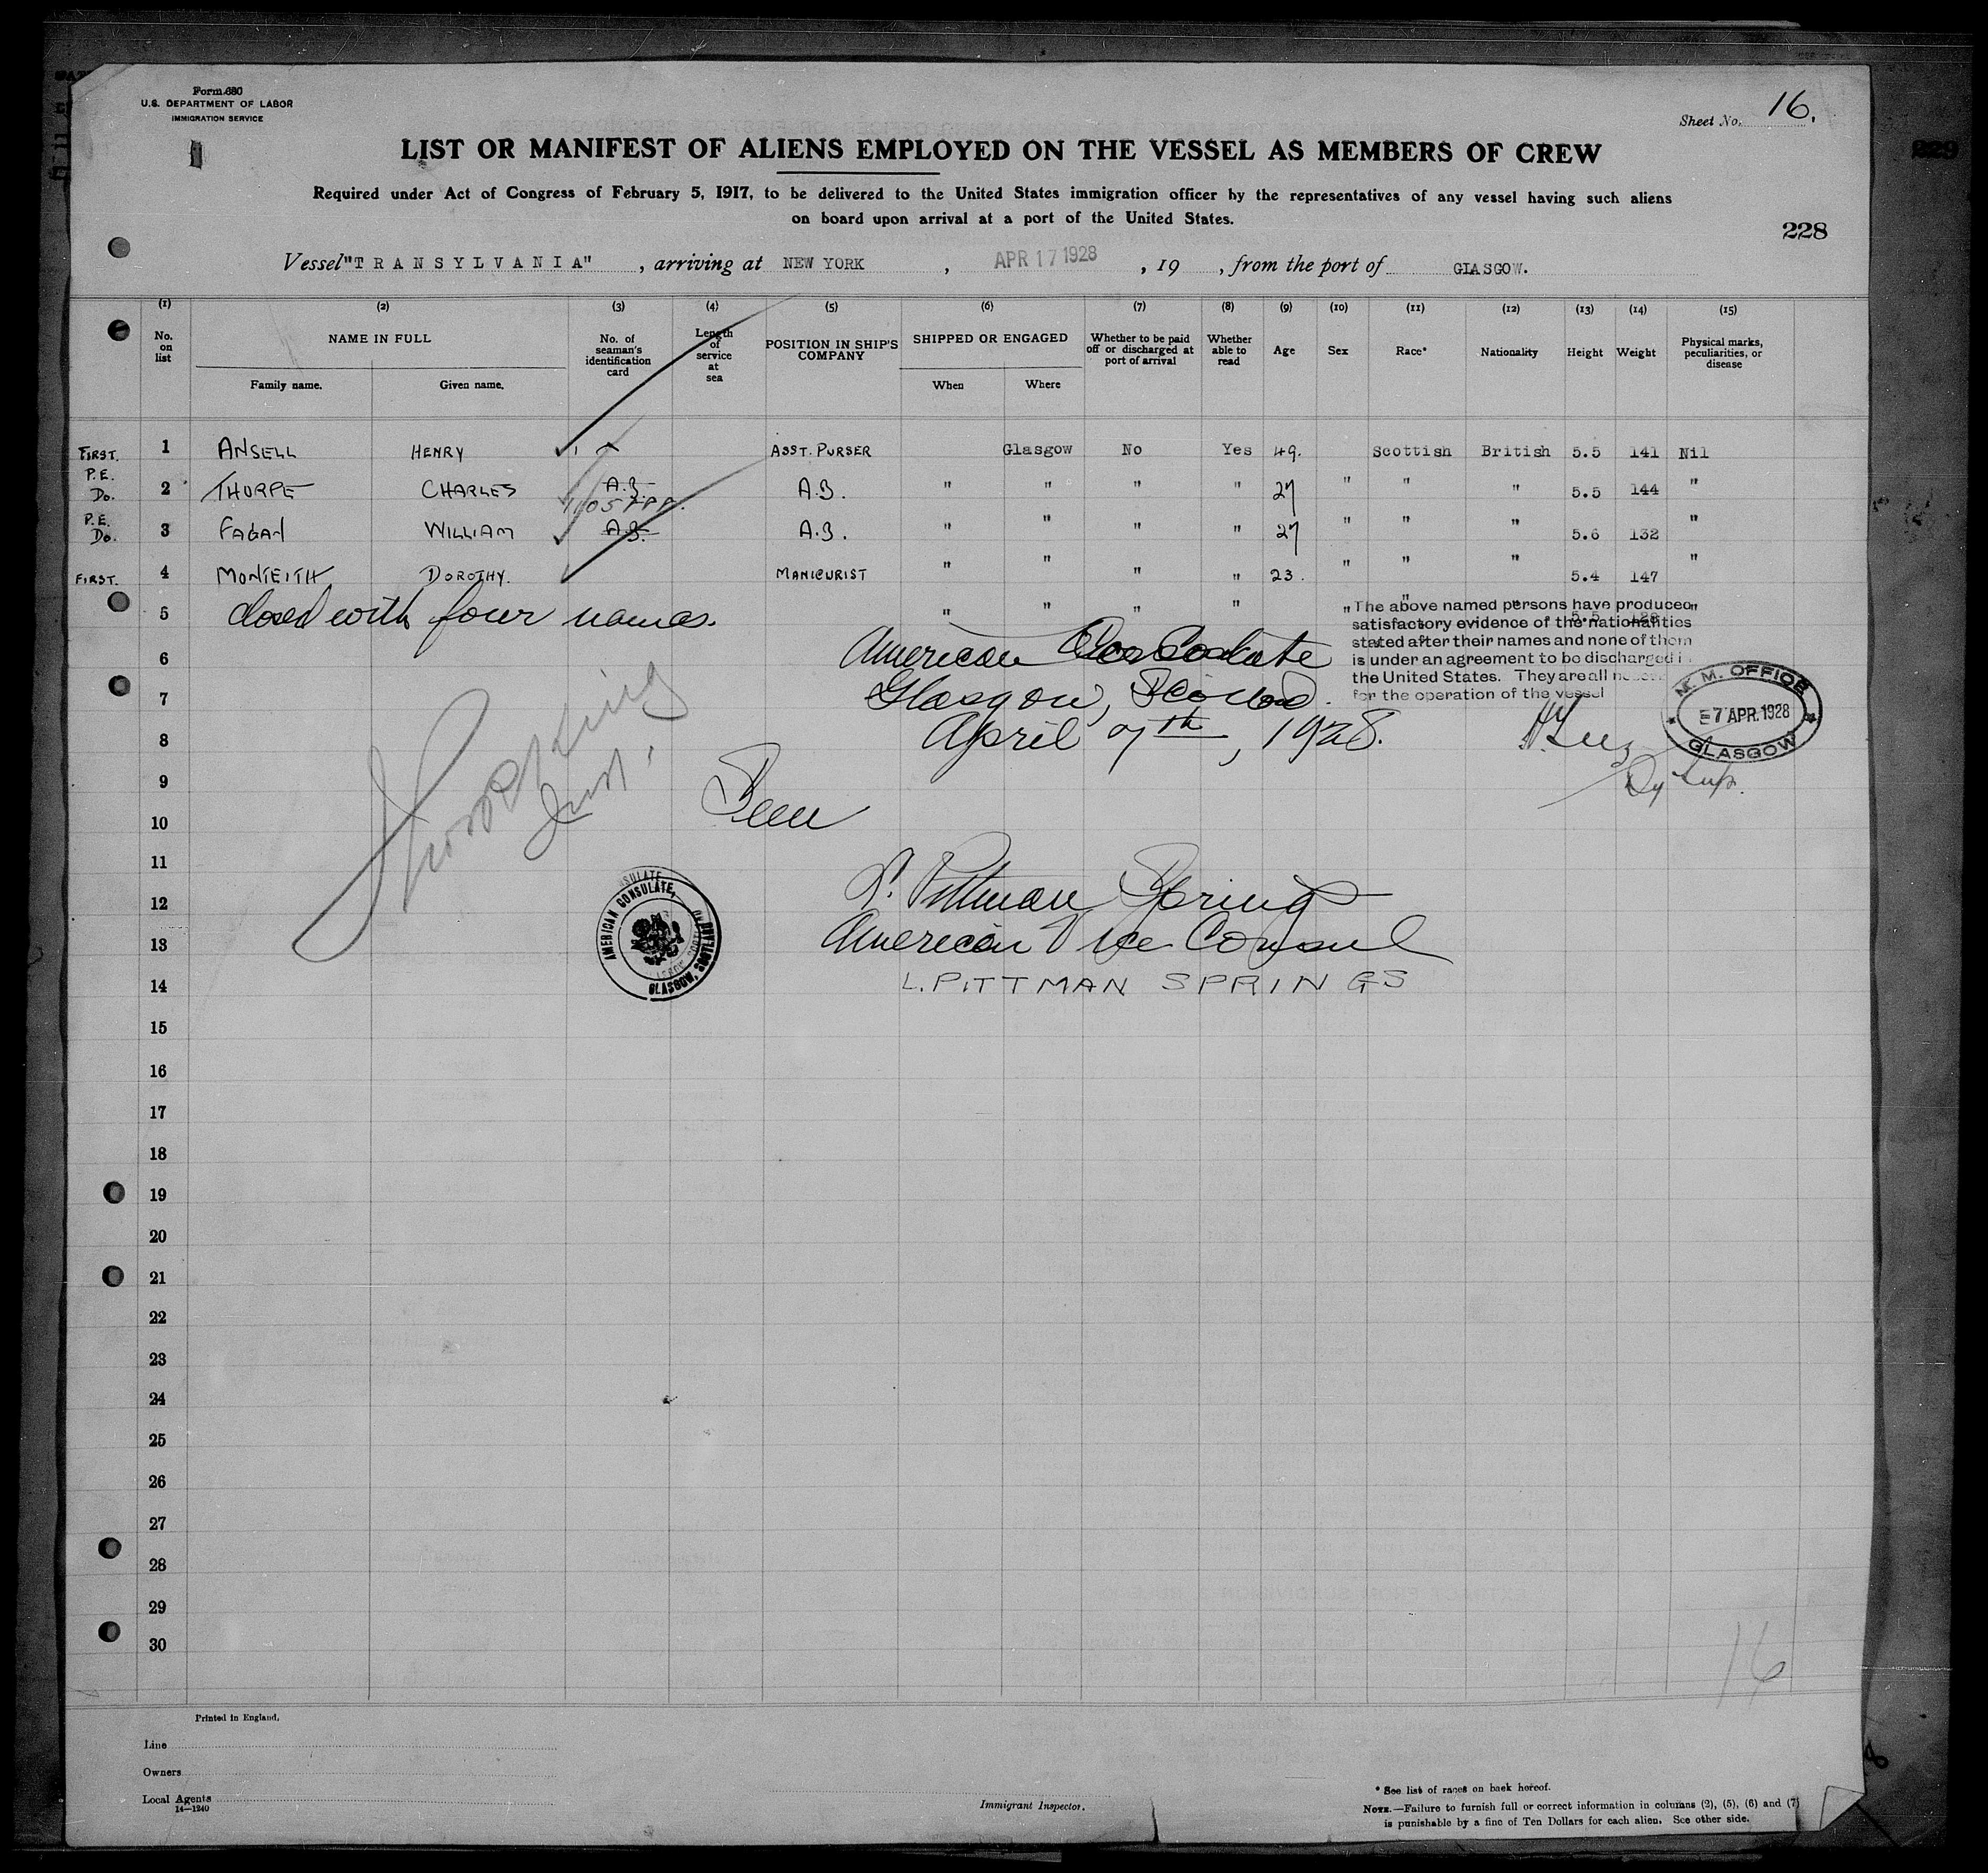 Form 680
U.S. DEPARTMENT OF LABOR
IMMIGRATION SERVICE
Sheet No. 16.
LIST OR MANIFEST OF ALIENS EMPLOYED ON THE VESSEL AS MEMBERS OF CREW
Required under Act of Congress of February 5, 1917, to be delivered to the United States immigration officer by the representatives of any vessel having such aliens
on board upon arrival at a port of the United States.
229
228
Vessel "TRANSYLVANIA", arriving at NEW YORK, APR 17 1928, 19 , from the port of GLASGOW.
(1) (2) (3) (4) (5) (6) (7) (8) (9) (10) (11) (12) (13) (14) (15)
No. on list NAME IN FULL No. of seaman's identification card Length of service at sea POSITION IN SHIP'S COMPANY SHIPPED OR ENGAGED Whether to be paid off or discharged at port of arrival Whether able to read Age Sex Race* Nationality Height Weight Physical marks, peculiarities, or disease
Family name. Given name. When Where
FIRST. 1 ANSELL HENRY ASST. PURSER Glasgow No Yes 49. Scottish British 5.5 141 Nil
P.E. Do. 2 THORPE CHARLES A.B. A.B. " " " " 27 " " " 5.5 144 "
P.E. Do. 3 FAGAN WILLIAM A.B. A.B. " " " " 27 " " " 5.6 132 "
FIRST. 4 MONTEITH DOROTHY. MANICURIST " " " " 23. " " " 5.4 147 "
5 closed with four names. " " " " " " " 5.5 "
The above named persons have produced
satisfactory evidence of the nationalities
stated after their names and none of them
is under an agreement to be discharged i
the United States. They are all
for the operation of the vessel
6 American Consulate
7 Glasgow, Scotland.
8 April 7th, 1928.
M. M. OFFICE
7 APR. 1928
GLASGOW
Dy Supt.
9
10 Seen
11
12 L. Pittman Springs
13 American Vice Consul
14 L. PITTMAN SPRINGS
AMERICAN CONSULATE,
GLASGOW, SCOTLAND
15
16
17
18
19
20
21
22
23
24
25
26
27
28
29
30
16
Printed in England.
Line
Owners
Local Agents
14—1240
Immigrant Inspector.
* See list of races on back hereof.
NOTE.—Failure to furnish full or correct information in columns (2), (5), (6) and (7)
is punishable by a fine of Ten Dollars for each alien. See other side.